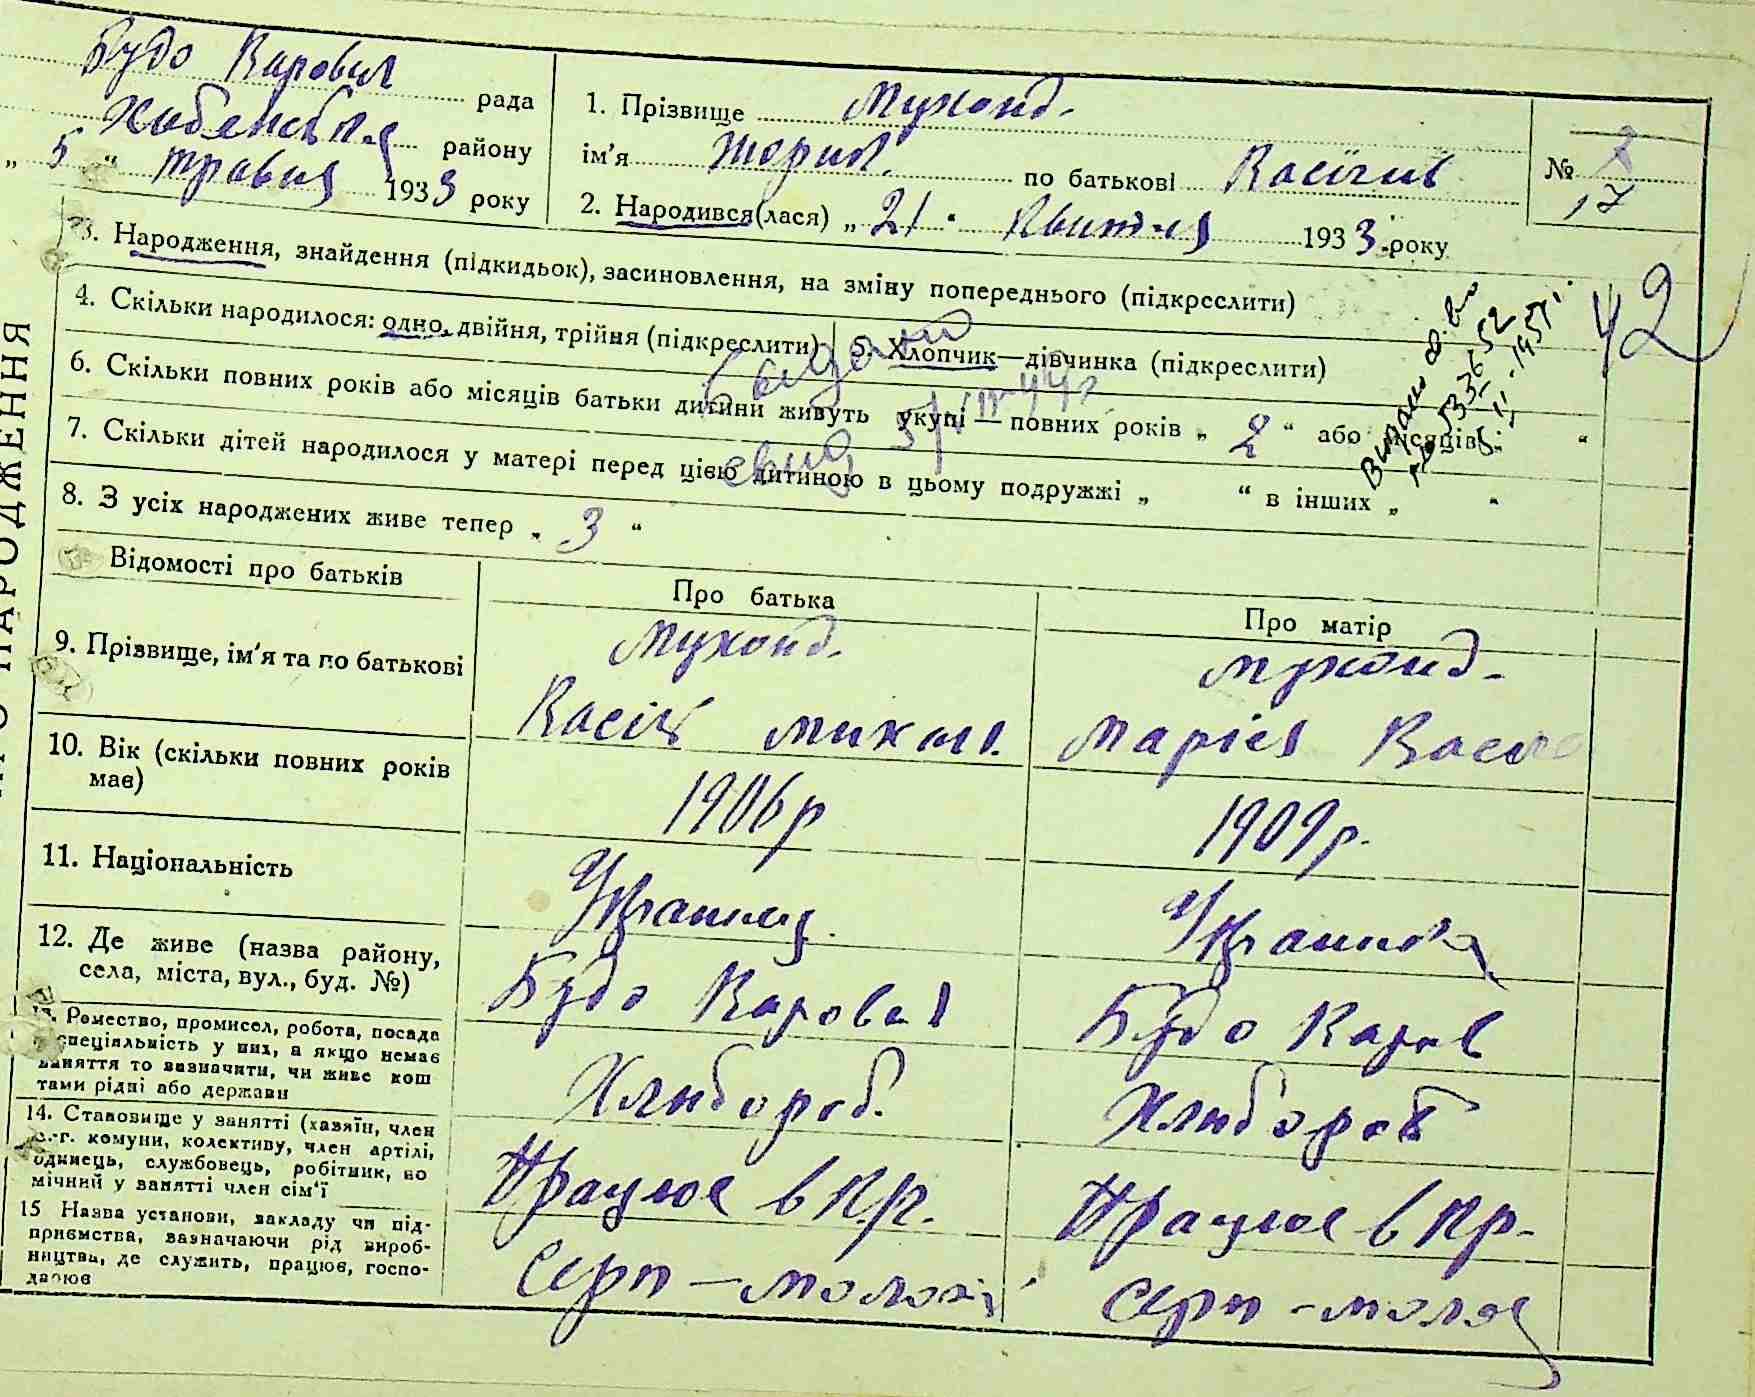 Будо Варовил рада
Хабенський району
„ 5 “ травня 1933 року
1. Прізвище Муховд.
ім'я по батькові Васілів
2. Народився(лася) „ 21 “ Квитня 1933 року
№
17
42
3. Народження, знайдення (підкидьок), засиновлення, на зміну попереднього (підкреслити)
4. Скільки народилося: одно, двійня, трійня (підкреслити)
5. Хлопчик—дівчинка (підкреслити)
6. Скільки повних років або місяців батьки дитини живуть укупі — повних років „ 2 “ або місяців „ “
7. Скільки дітей народилося у матері перед цією дитиною в цьому подружжі „ “ в інших „ “
8. З усіх народжених живе тепер „ 3 “
Відомості про батьків
Про батька
Про матір
9. Прізвище, ім'я та по батькові
Муховд.
Васіль Микол.
Муховд.
Марія Васил
10. Вік (скільки повних років має)
1906р
1909р.
11. Національність
Украинец.
Украинка
12. Де живе (назва району,
села, міста, вул., буд. №)
Будо Варовил
Будо Варов
13. Ремество, промисел, робота, посада
спеціяльність у них, а якщо немає
заняття то зазначити, чи живе кош
тами рідні або держави
Хлибороб.
Хлибороб
14. Становище у занятті (хазяїн, член
с.-г. комуни, колективу, член артілі,
одинець, службовець, робітник, по
мічний у занятті член сім'ї
Працює в к.р.
Працює в кр.
15 Назва установи, закладу чи під-
приємства, зазначаючи рід вироб-
ництва, де служить, працює, госпо-
дарює
Серп-молот
Серп-молот